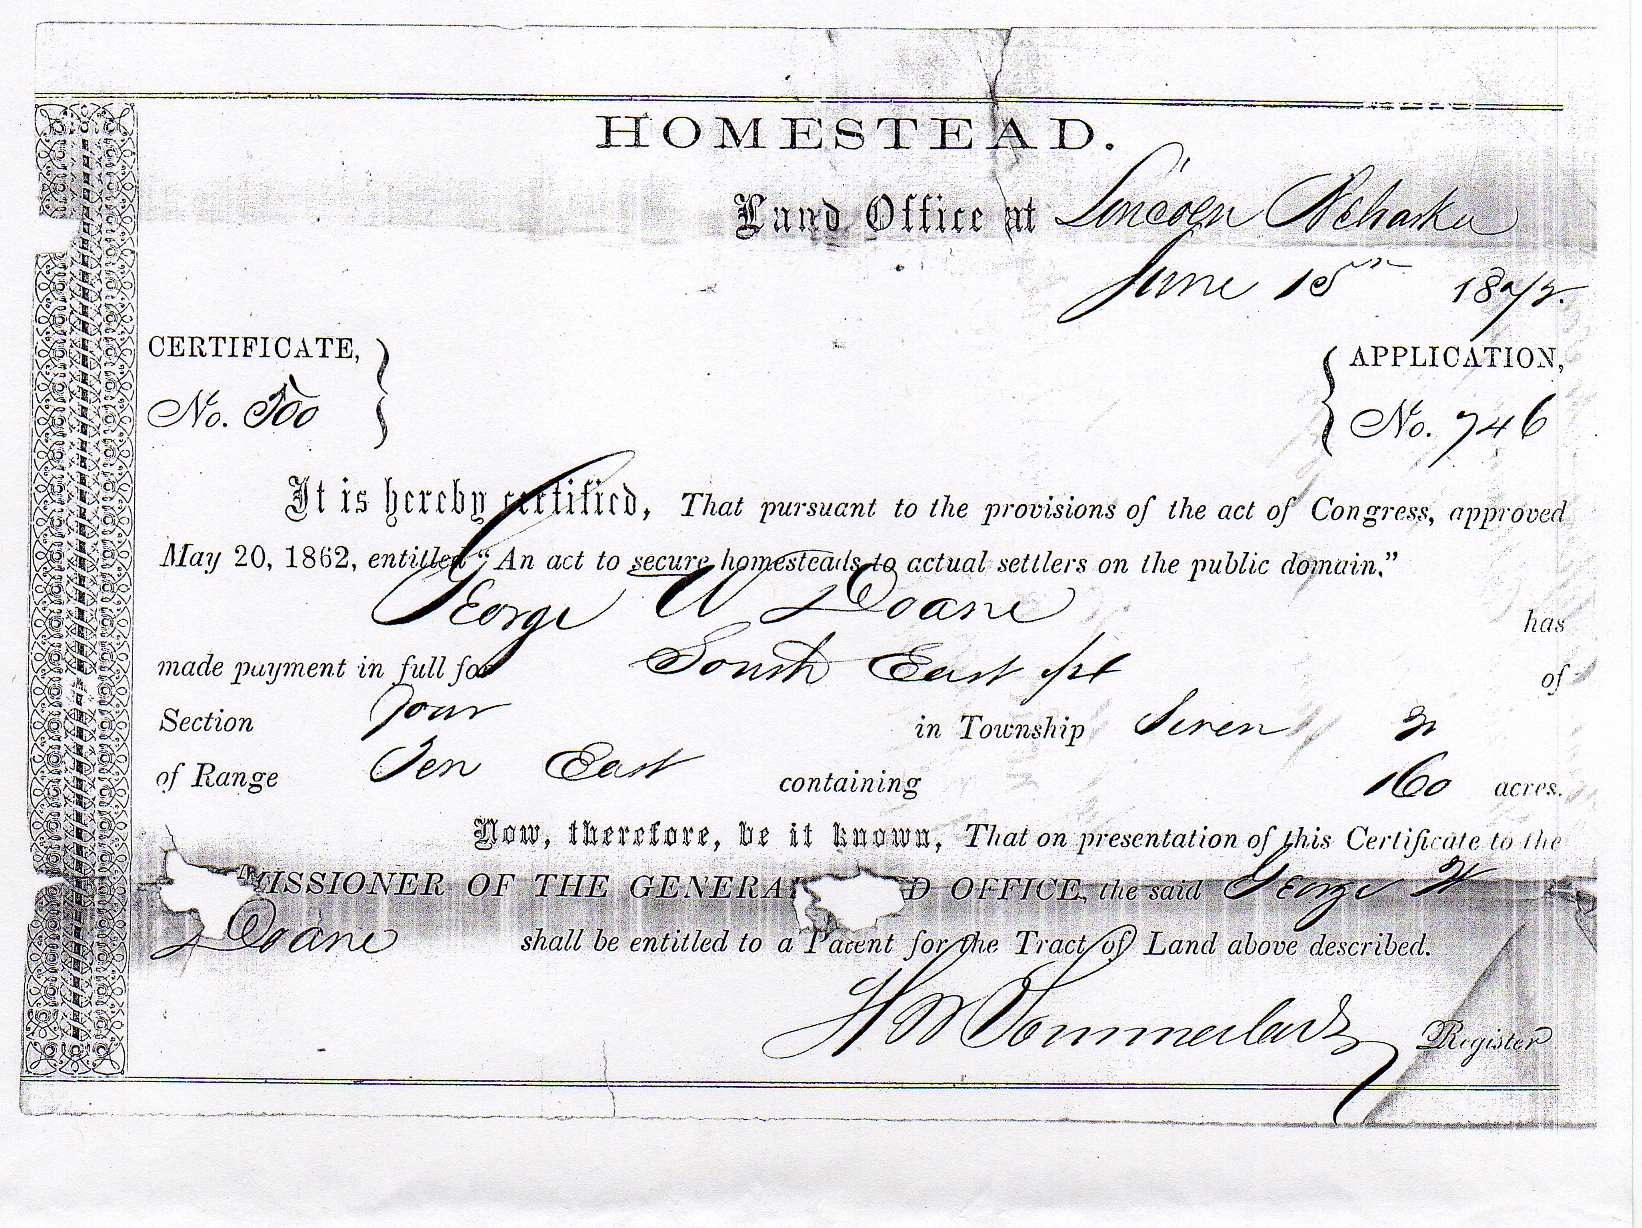 HOMESTEAD.
Land Office at Lincoln Nebraska
June 15th 1872.
CERTIFICATE,
No. 500
APPLICATION,
No. 746
It is hereby certified, That pursuant to the provisions of the act of Congress, approved
May 20, 1862, entitled "An act to secure homesteads to actual settlers on the public domain."
George W Doane has
made payment in full for South East 1/4 of
Section Four in Township Seven N
of Range Ten East containing 160 acres.
Now, therefore, be it known, That on presentation of this Certificate to the
MISSIONER OF THE GENERAL D OFFICE, the said George W
Doane shall be entitled to a Patent for the Tract of Land above described.
Register